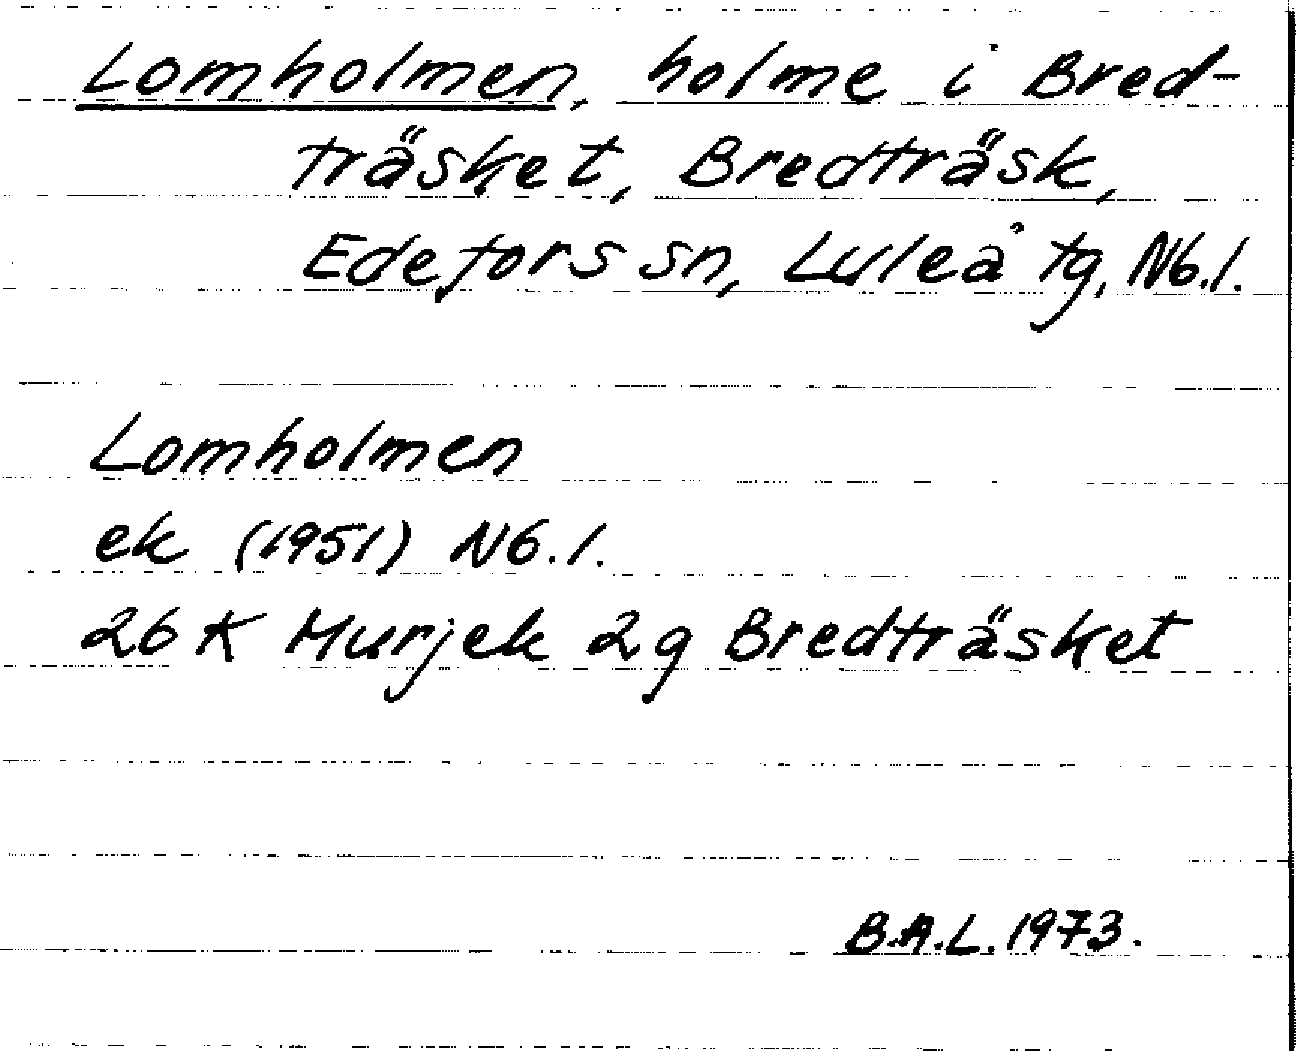 Lomholmen, holme i Bred-
träsket, Bredträsk,
Edefors sn, Luleå tg, Nb.l.
Lomholmen
ek (1951) Nb.l.
26 K Murjek 2g Bredträsket
B.A.L. 1973.